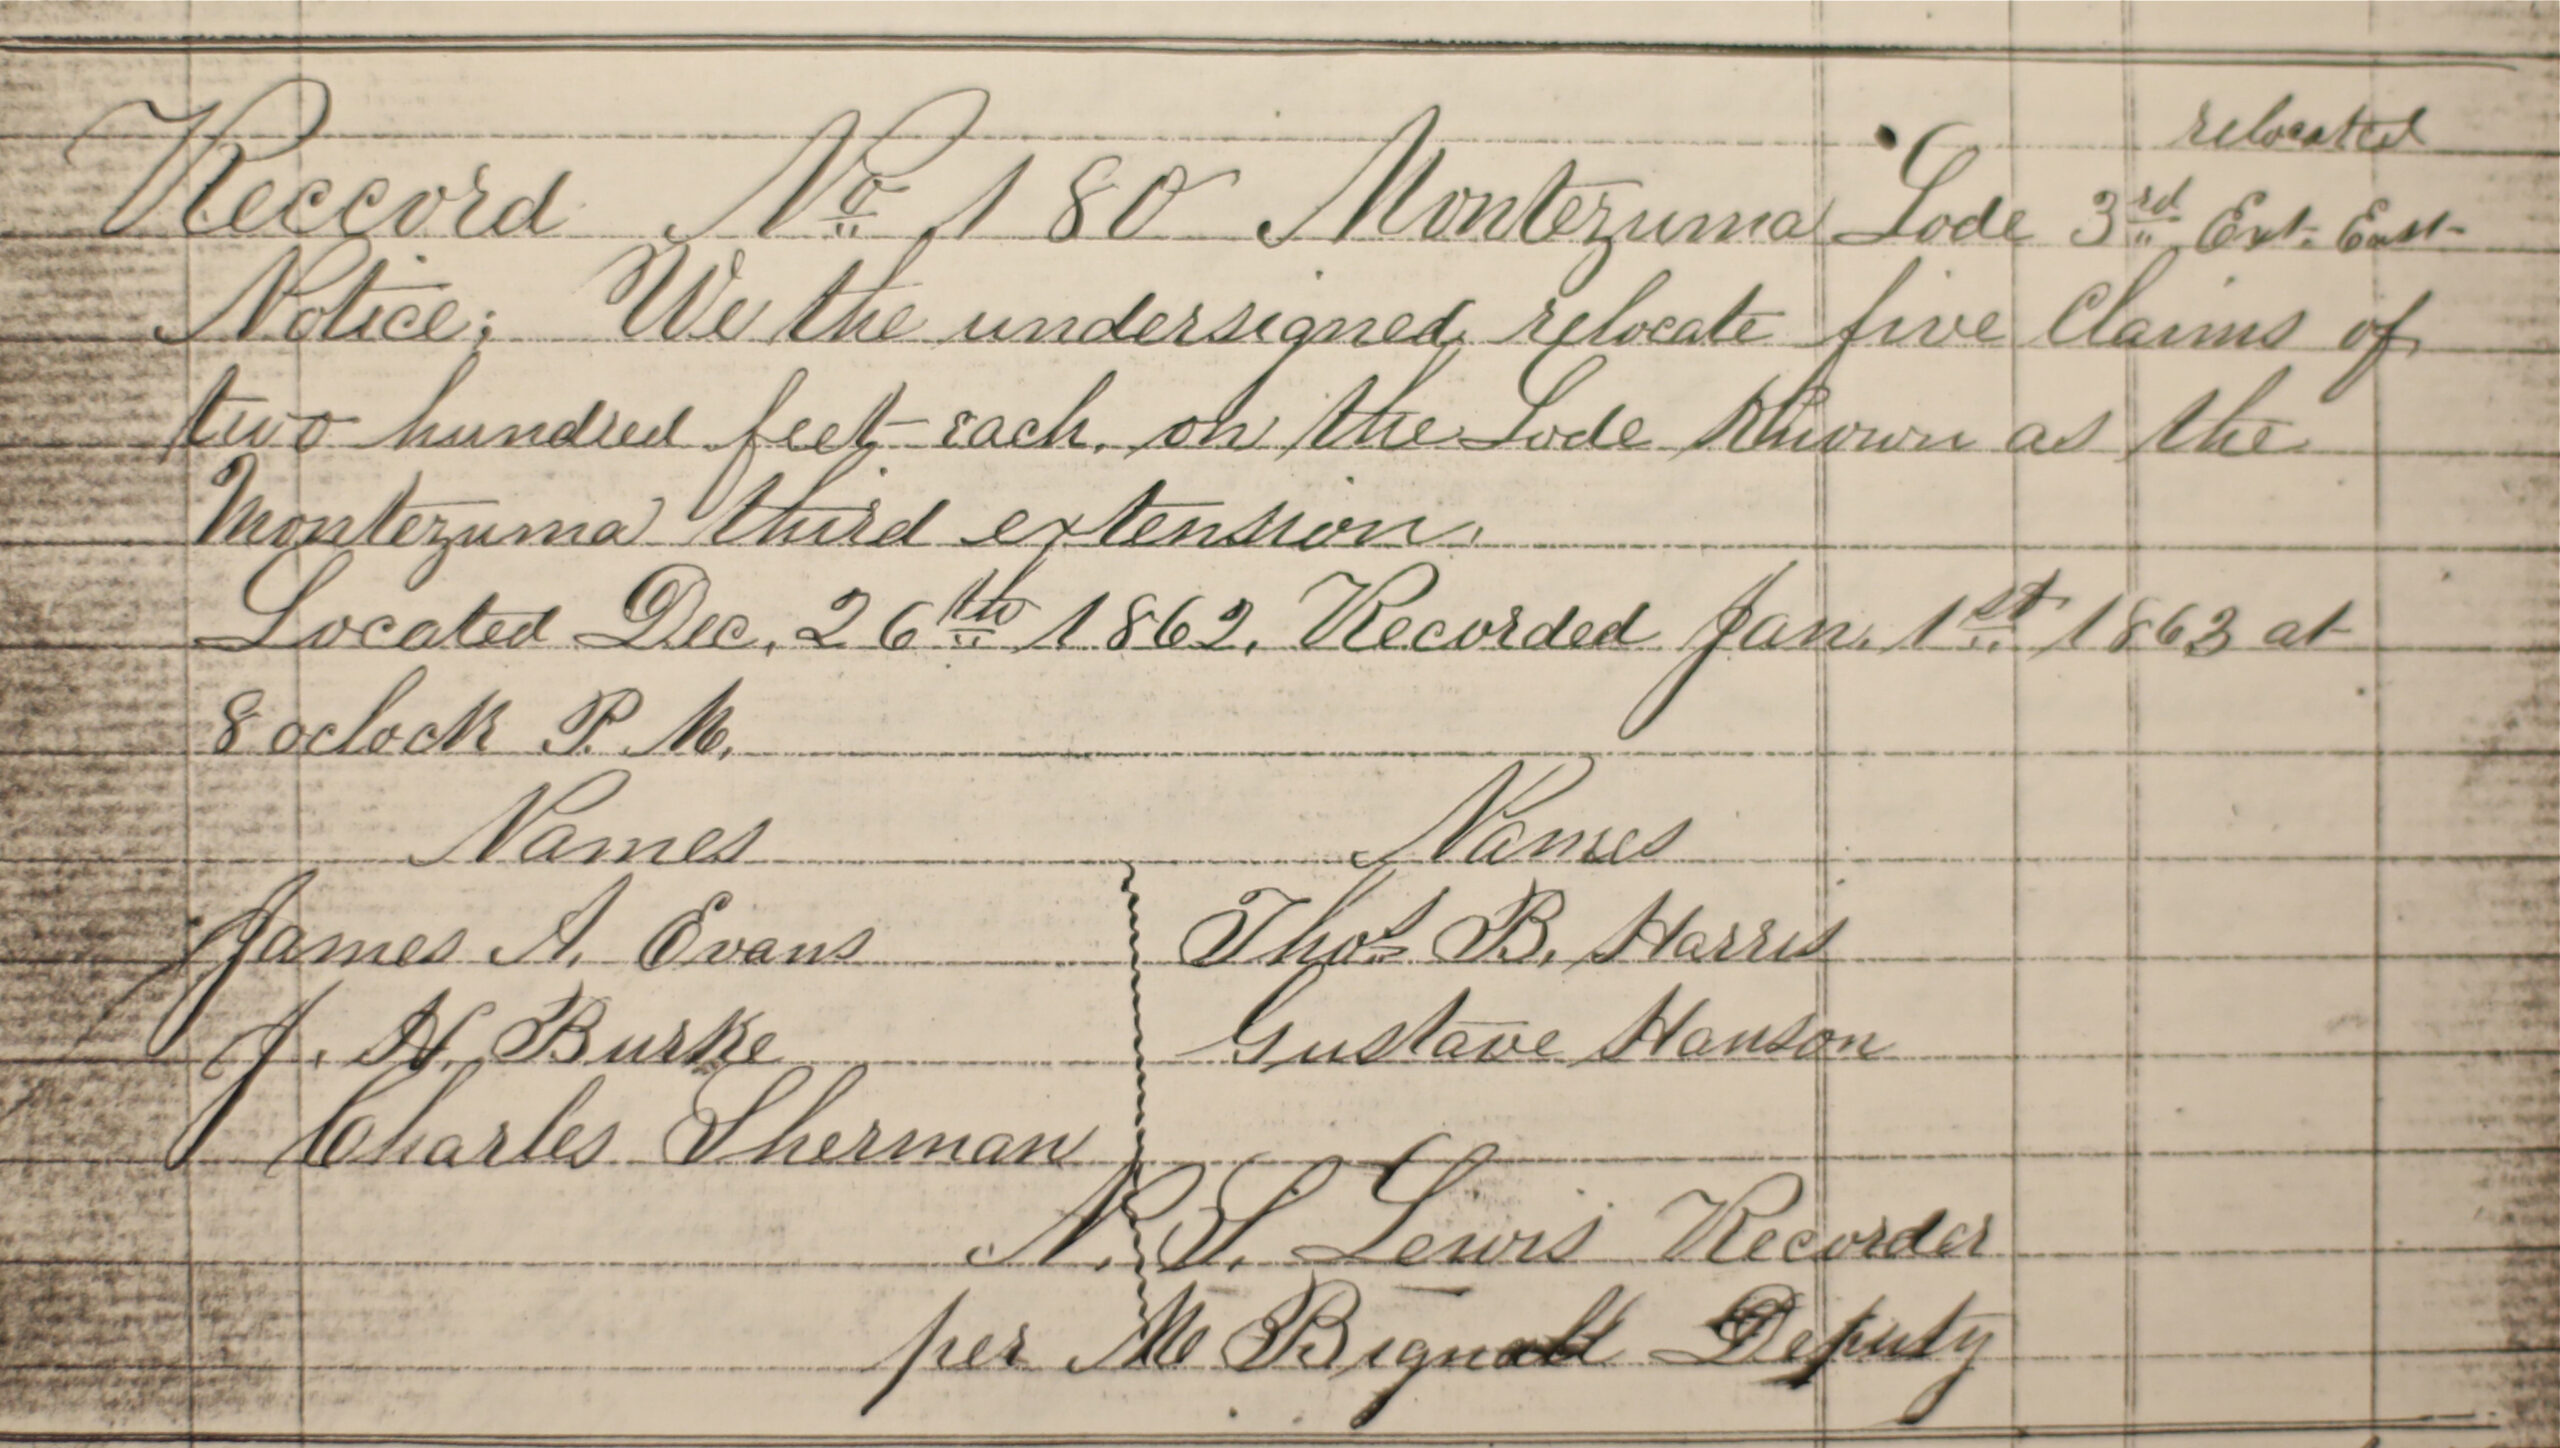 relocated
Record No 180 Montezuma Lode 3rd Ext. East
Notice; We the undersigned relocate five Claims of
two hundred feet each, on the Lode Known as the
Montezuma third extension.
Located Dec, 26th 1862, Recorded Jan. 1st 1863 at
8 oclock P. M.
Names Names
James A. Evans Thos B. Harris
J. H. Burke Gustave Hanson
Charles Sherman
N. S. Lewis Recorder
per M Bignall Deputy